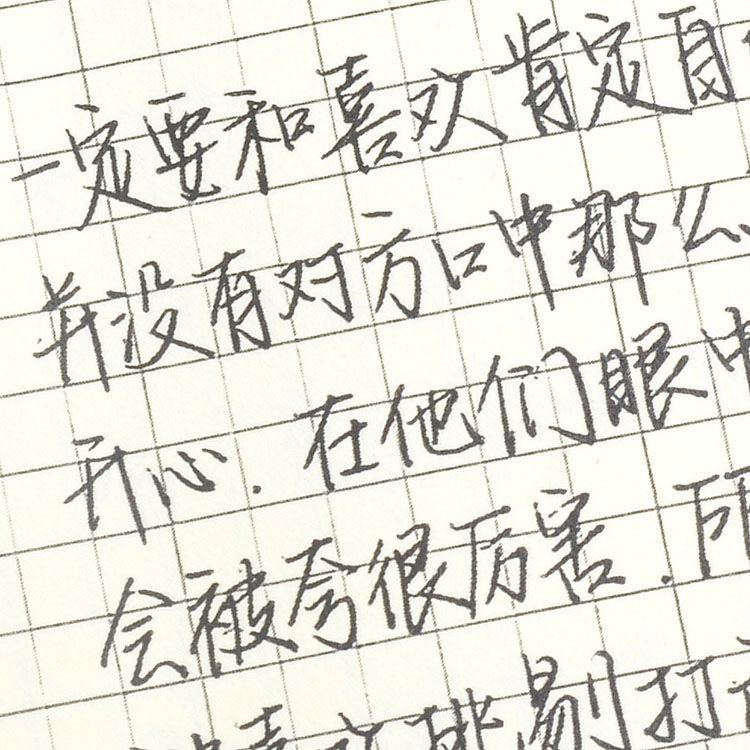 一定要和喜欢肯定自
并没有对方口中那么
开心.在他们眼中
会被夸很厉害.所
喜欢挑剔打